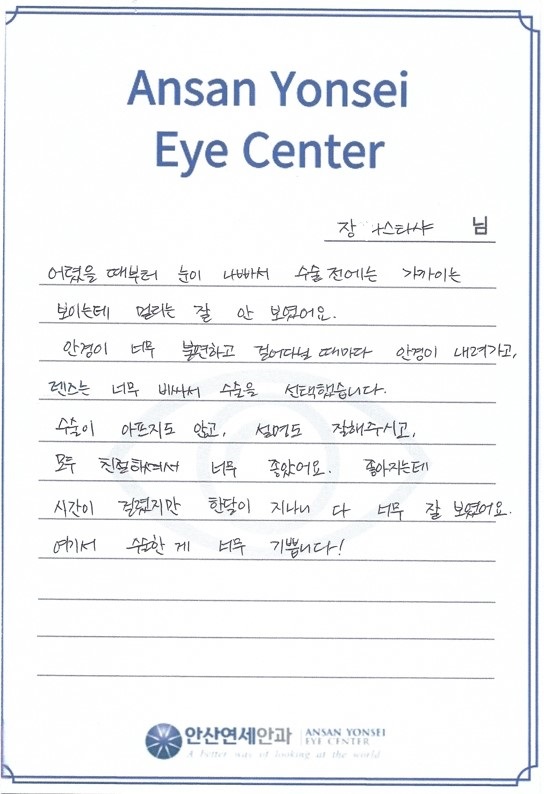 Ansan Yonsei
Eye Center
장 스타샤 님
어렸을 때부터 눈이 나빠서 수술 전에는 가까이는
보이는데 멀리는 잘 안 보였어요.
안경이 너무 불편하고 걸어다닐 때마다 안경이 내려가고,
렌즈는 너무 비싸서 수술을 선택했습니다.
수술이 아프지도 않고, 설명도 잘해주시고,
모두 친절하셔서 너무 좋았어요. 좋아지는데
시간이 걸렸지만 한달이 지나니 다 너무 잘 보였어요.
여기서 수술한 게 너무 기쁩니다!
안산연세안과 ANSAN YONSEI
EYE CENTER
A better way of looking at the world